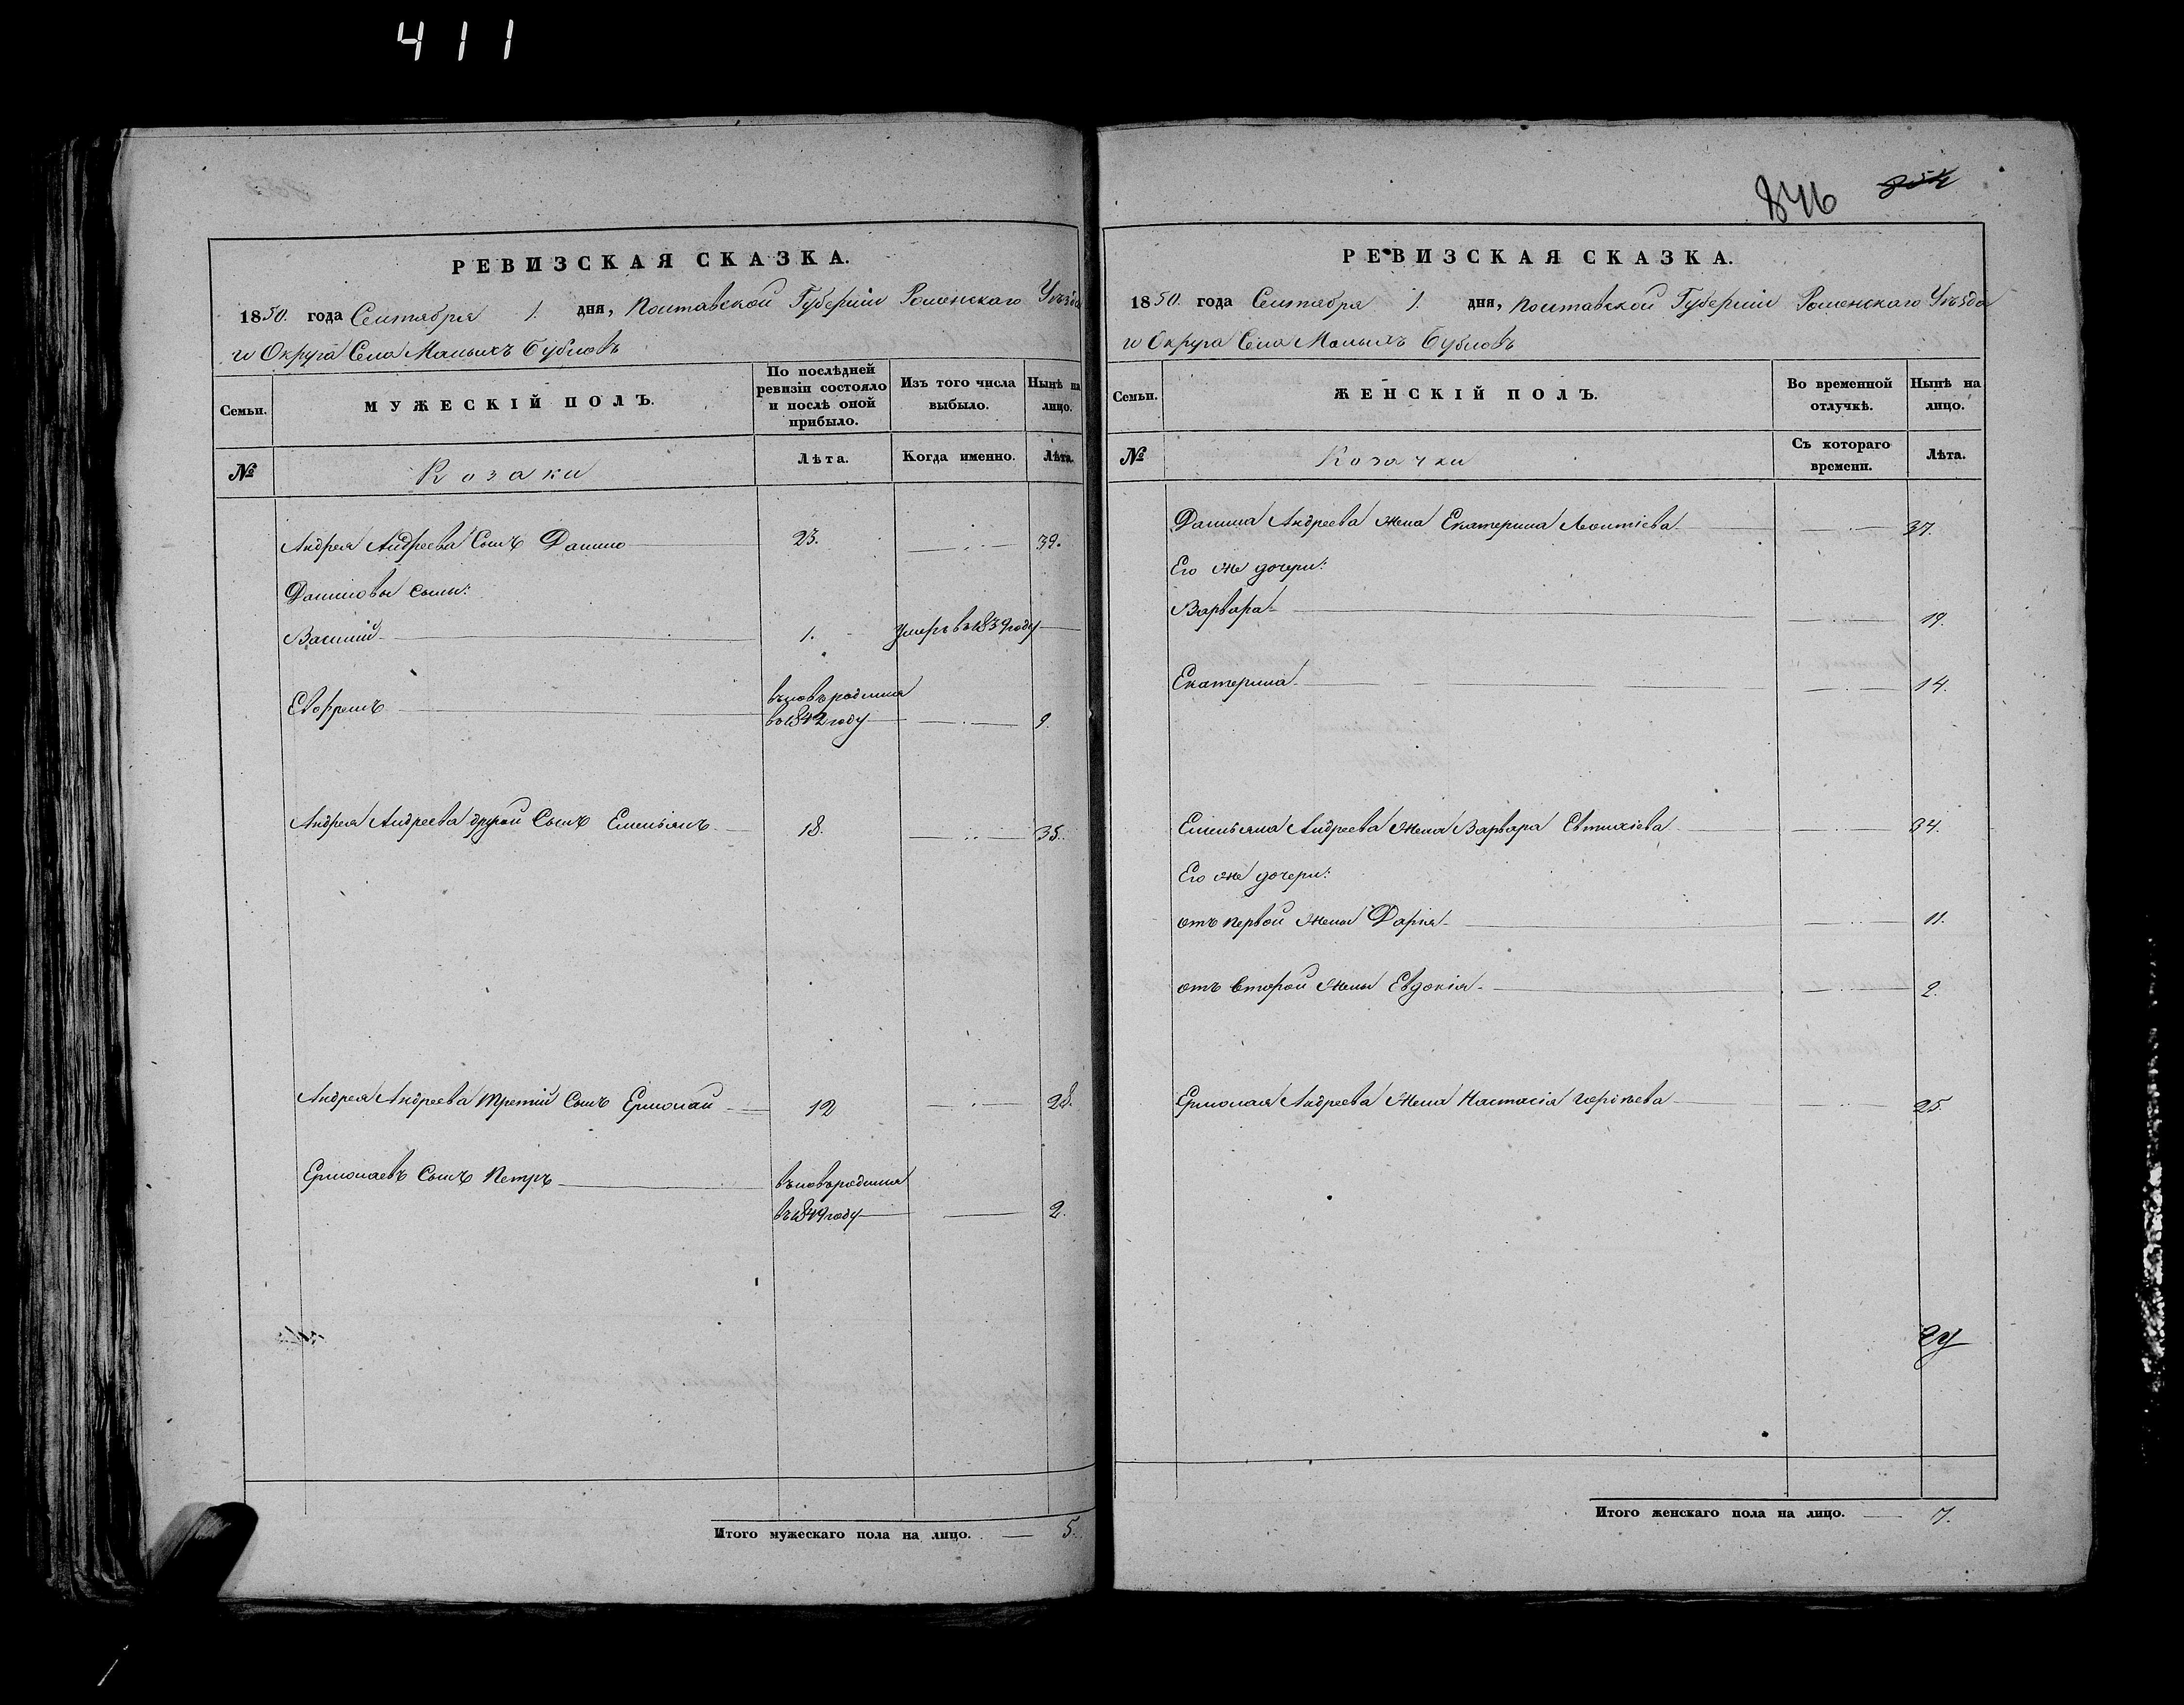 411
846
854
РЕВИЗСКАЯ СКАЗКА.
1850. года Сентября 1. дня, Полтавской Губерніи Роменскаго Уѣзда
и Округа Села Малыхъ Бубновъ
Семьи.
МУЖЕСКІЙ ПОЛЪ.
По послѣдней ревизіи состояло и послѣ оной прибыло.
Изъ того числа выбыло.
Нынѣ на лицо.
№
Козаки
Лѣта.
Когда именно.
Лѣта.
Андрея Андреева Сынъ Данило 23. 39.
Даниловы сыны:
Василий 1. Умеръ въ 1839 году
Евфремъ вновьродился
въ 1842 году 9.
Андрея Андреева другой Сынъ Емельянъ 18. 35.
Андрея Андреева третій Сынъ Ермолай 12 28.
Ермолаевъ Сынъ Петръ вновьродился
въ 1849 году 2.
Итого мужескаго пола на лицо. 5.
РЕВИЗСКАЯ СКАЗКА.
1850. года Сентября 1. дня, Полтавской Губерніи Роменскаго Уѣзда
и Округа Села Малыхъ Бубновъ
Семьи.
ЖЕНСКІЙ ПОЛЪ.
Во временной отлучкѣ.
Нынѣ на лицо.
№
Козачки
Съ котораго времени.
Лѣта.
Данила Андреева жена Екатерина Леонтіева 37.
Его же дочери:
Варвара 19.
Екатерина 14.
Емельяна Андреева жена Варвара Евтихіева 34.
Его же дочери:
отъ первой жены Дарія 11.
отъ второй жены Евдокія 2.
Ермолая Андреева жена Настасія 25.
Итого женскаго пола на лицо. 7.